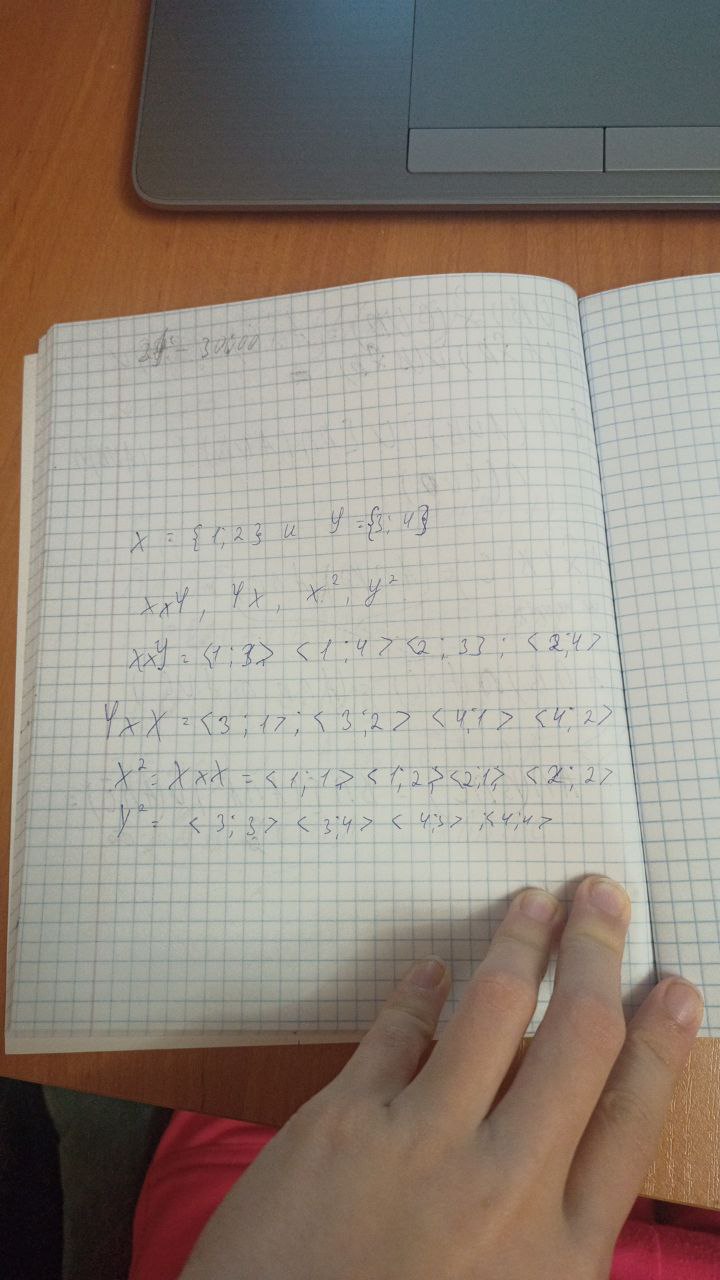 X = {1; 2} и Y = {3; 4}
XxY, YX, X², Y²
XxY = <1; 3> <1; 4> <2; 3}; <2; 4>
YxX = <3; 1>; <3; 2> <4; 1> <4; 2>
X² = XxX = <1; 1> <1; 2> <2; 1>, <2; 2>
Y² = <3; 3> <3; 4> <4; 3>; <4; 4>